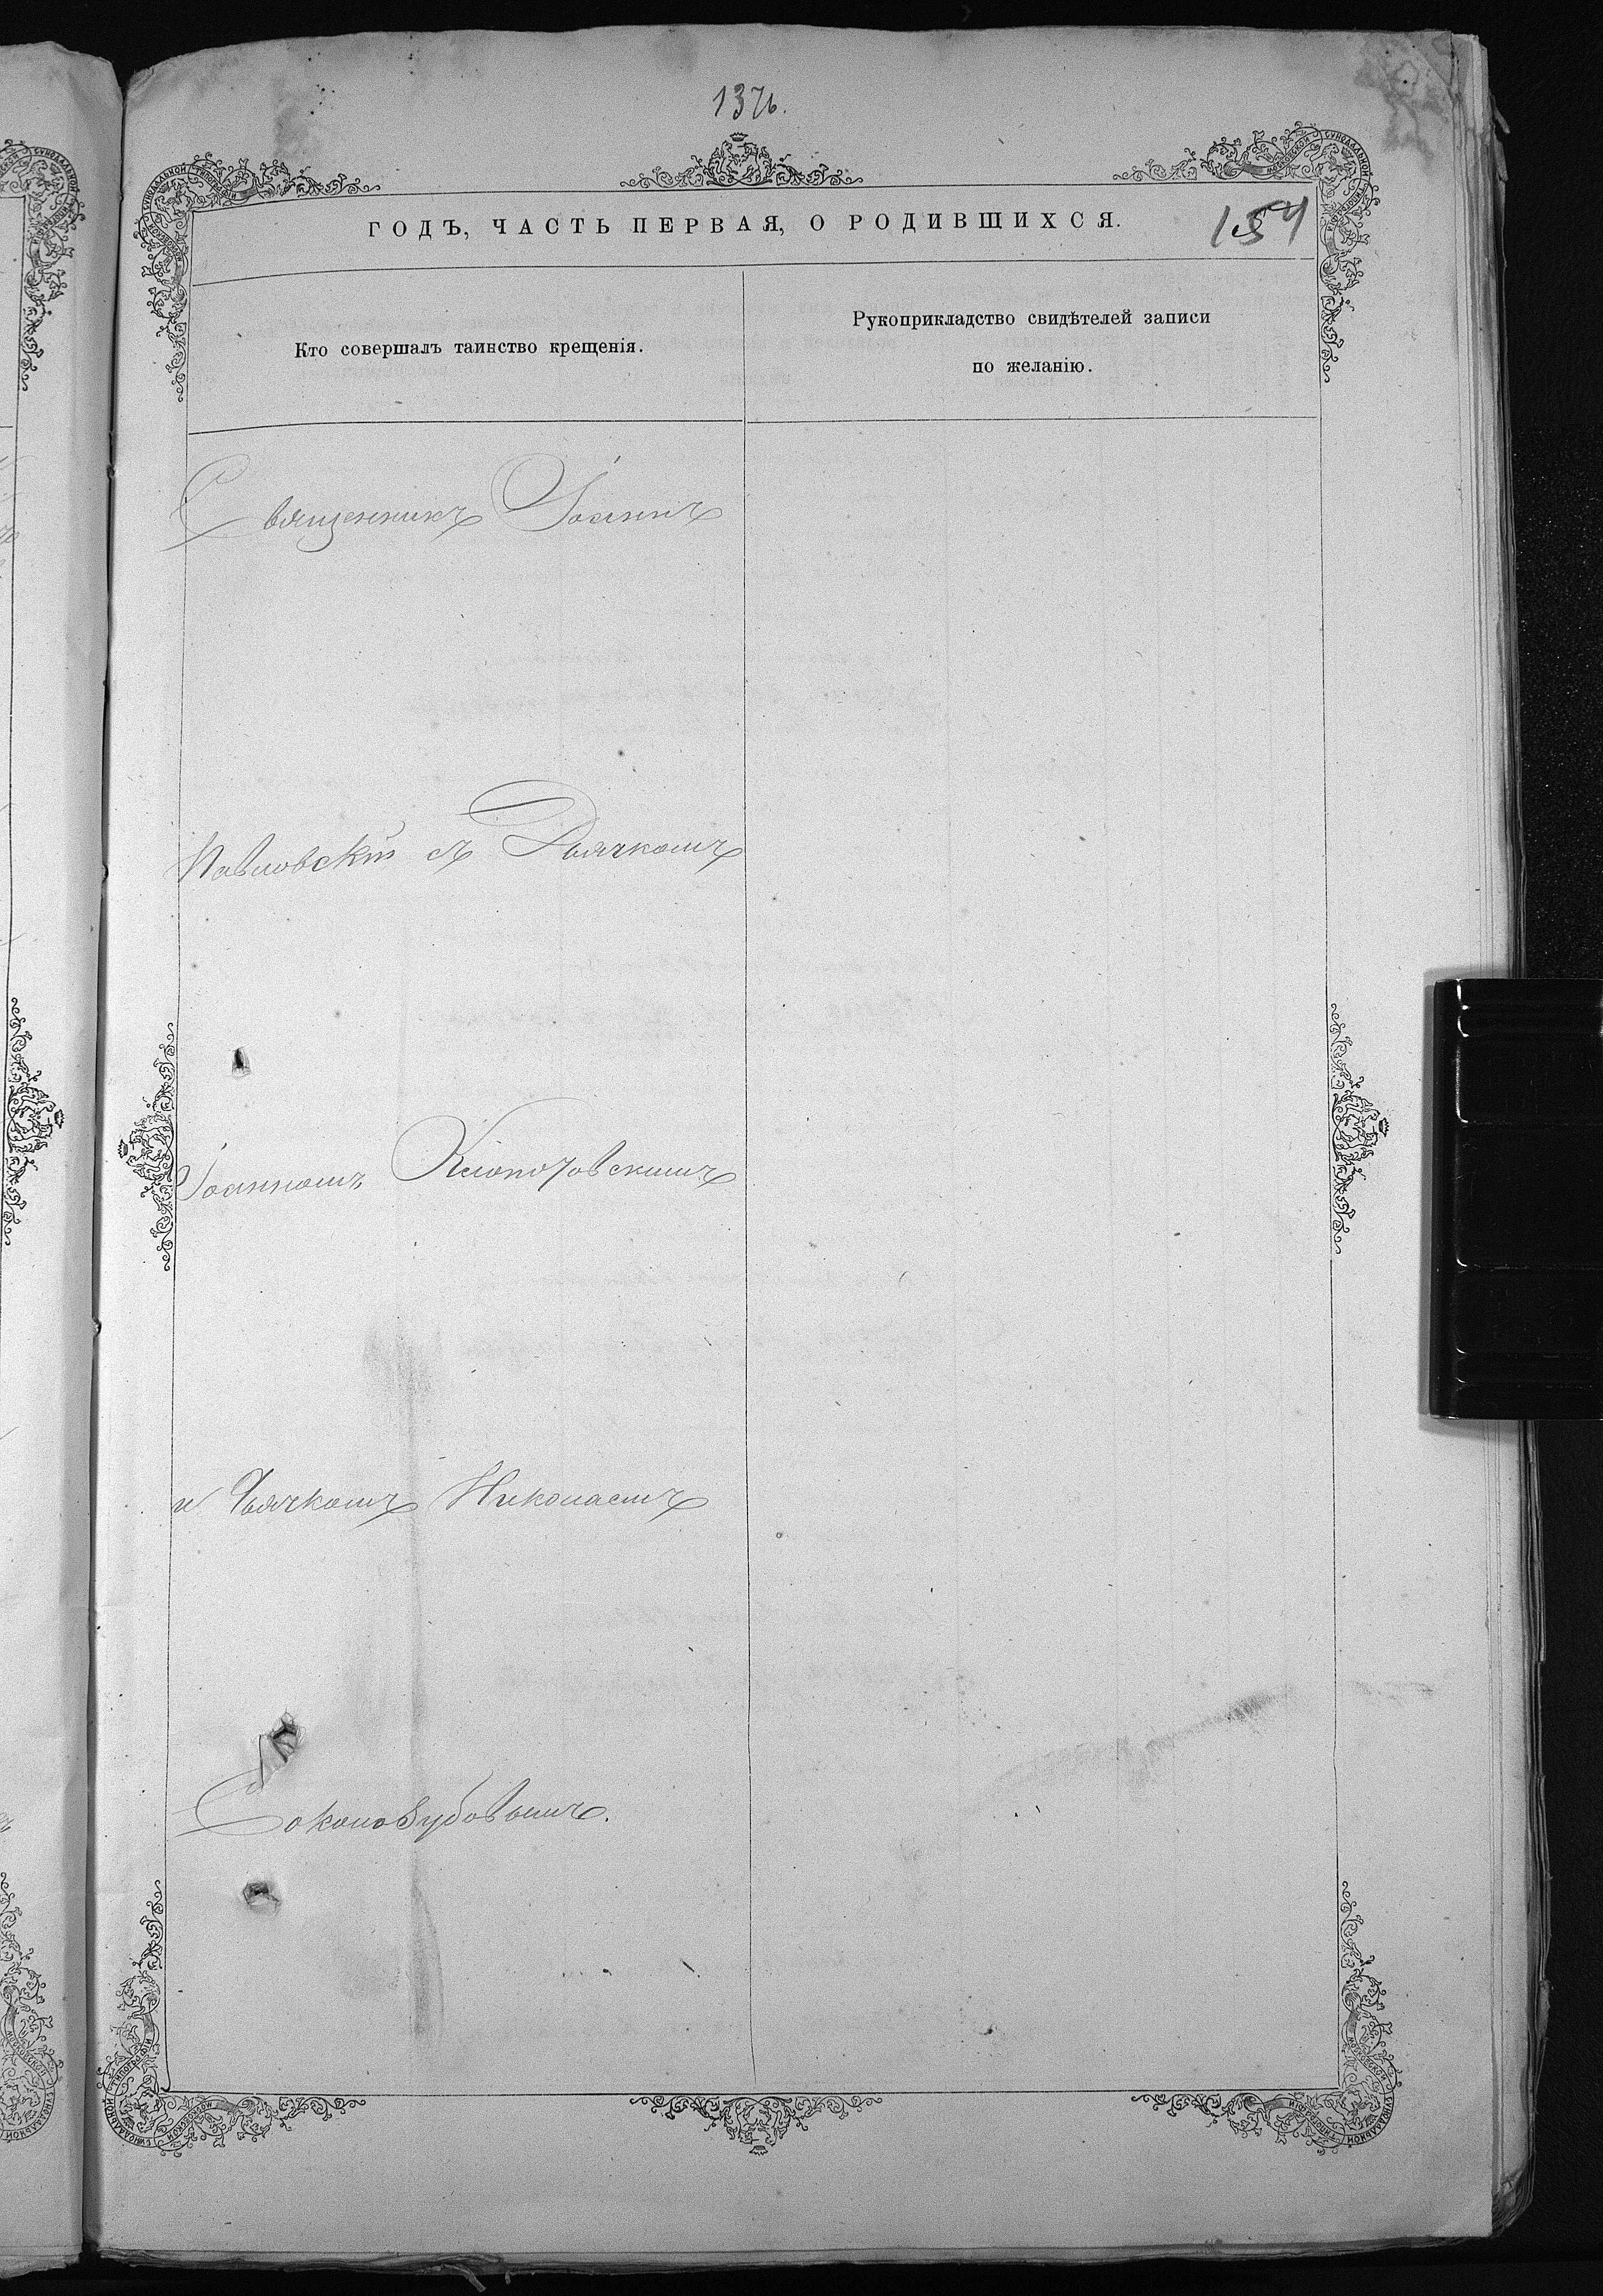 137б.
ГОДЪ, ЧАСТЬ ПЕРВАЯ, О РОДИВШИХСЯ.
154
Кто совершалъ таинство крещенія.
Рукоприкладство свидѣтелей записи
по желанію.
Священникъ Іоаннъ
Павловскій съ Дьячкомъ
Іоанномъ Клопотовскимъ
и Дьячкомъ Николаемъ
Соколозубовымъ.